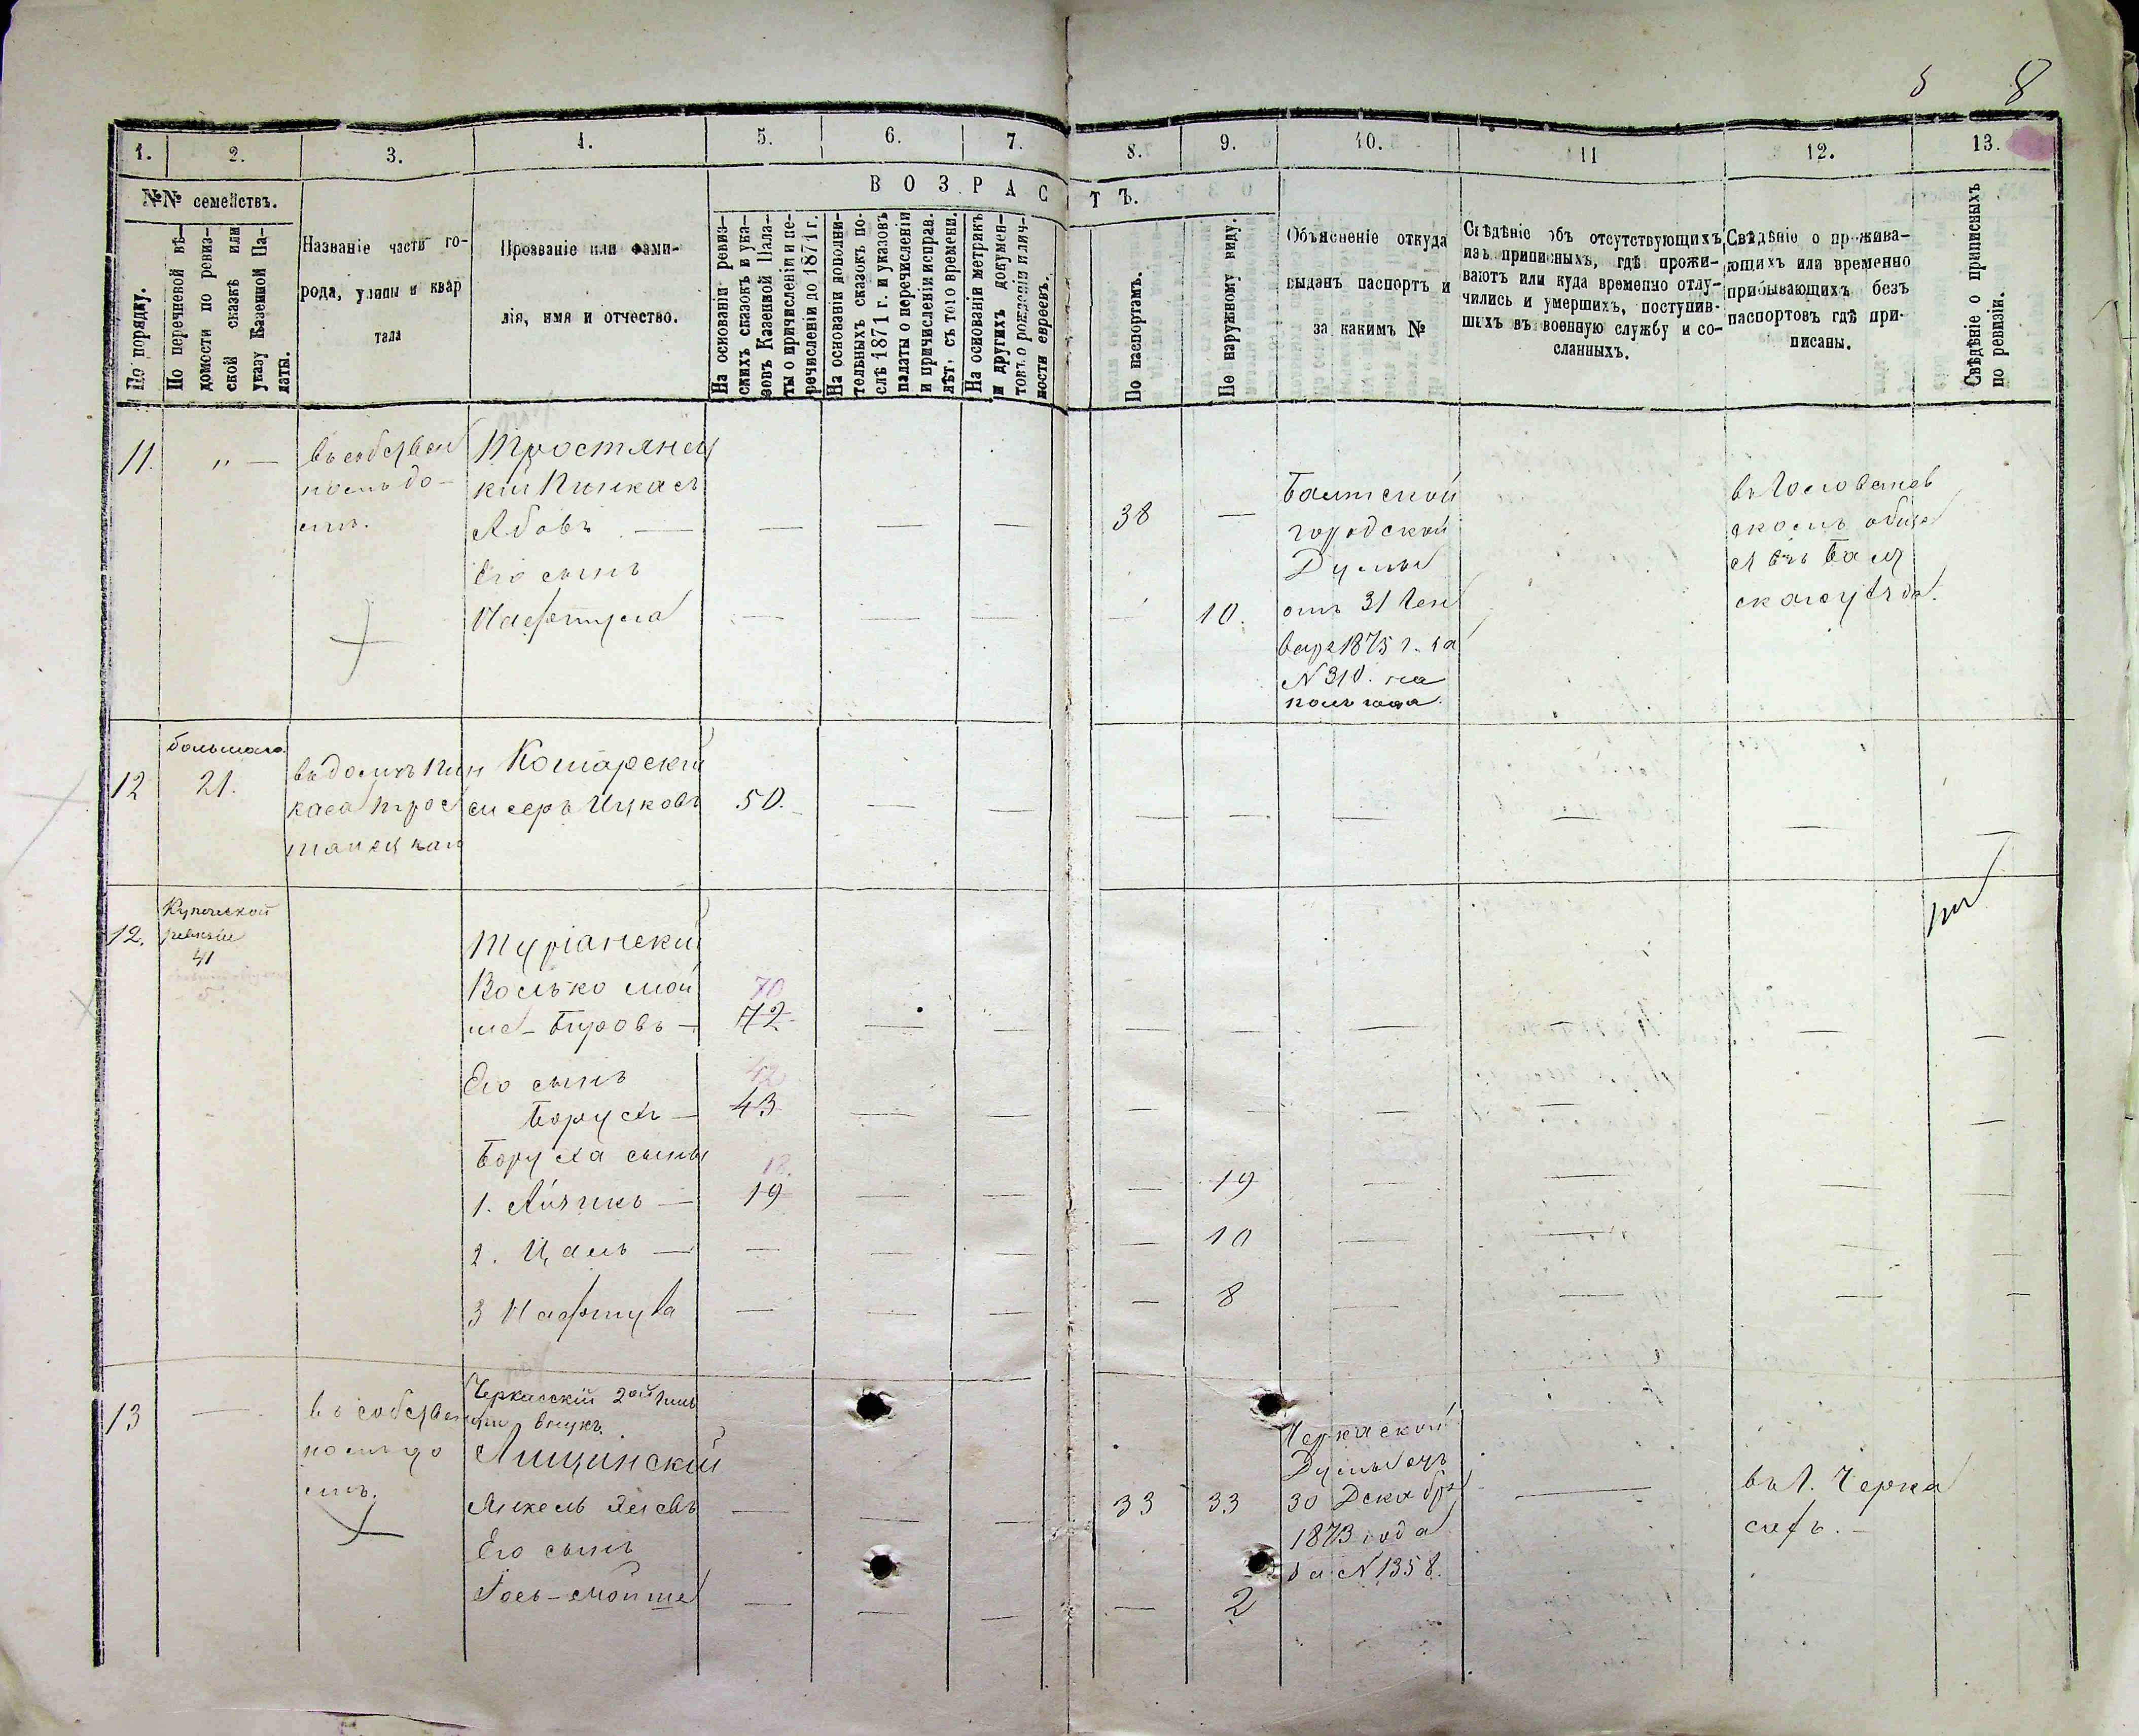 8
1. 2. 3. 4. 5. 6. 7. 8. 9. 10. 11 12. 13.
№№ семействъ.
По порядку.
По перечневой вѣ-
домости по ревиз-
ской сказкѣ или
указу Казенной Па-
латы.
Названіе части го-
рода, улицы и квар
тала
Прозваніе или фами-
лія, имя и отчество.
ВОЗРАСТЪ.
На основаніи ревиз-
скихъ сказокъ и ука-
зовъ Казенной Пала-
ты о причисленіи и пе-
речисленіи до 1871 г.
На основаніи дополни-
тельныхъ сказокъ по-
слѣ 1871 г. и указовъ
палаты о перечисленіи
и причисленіи исправ.
лѣт, съ того времени.
На основаніи метрикъ
и другихъ докумен-
товъ о рожденіи и лич-
ности евреевъ.
По паспортамъ.
По наружному виду.
Объясненіе откуда
выданъ паспортъ и
за какимъ №
Свѣдѣніе объ отсутствующихъ
изъ приписныхъ, гдѣ прожи-
ваютъ или куда временно отлу-
чились и умершихъ, поступив-
шихъ въ военную службу и со-
сланныхъ.
Свѣдѣніе о прожива-
ющихъ или временно
прибывающихъ безъ
паспортовъ гдѣ при-
писаны.
Свѣдѣніе о приписныхъ
по ревизіи.
11. „ —
въ собствен
номъ до-
мѣ.
Тростянец
кій Пинкасъ
Абовъ —
Его сынъ
Нафтула
38 —
10.
Балтской
городской
Думы
отъ 31 Ген
варя 1875 г. за
N 310. на
полгода.
въ
скомъ обще
ствѣ Балт
скаго уѣзда.
12
21.
въ домѣ Пин
каса Трос
тянецкаго
Кошарскій
Мееръ Ицковъ
50.
12.
Купеческой
ревизіи
41
Туріанскій
Волько Мой
ше-Беровъ —
70
72
Его сынъ
Борухъ —
42
43
Боруха сыны
1. Айзикъ —
18.
19
19
2. Цаль —
10
3 Нафтула
8
13 —
въ собствен
номъ до
мѣ.
Черкасскій 2ой гиль
діи внукъ
Лищинскій
Янкель
Его сынъ
Іось-Мойше
33 33
2
Черкаской
Думы отъ
30 Декабря
1873 года
за N 1358.
въ г. Черка
сахъ. —